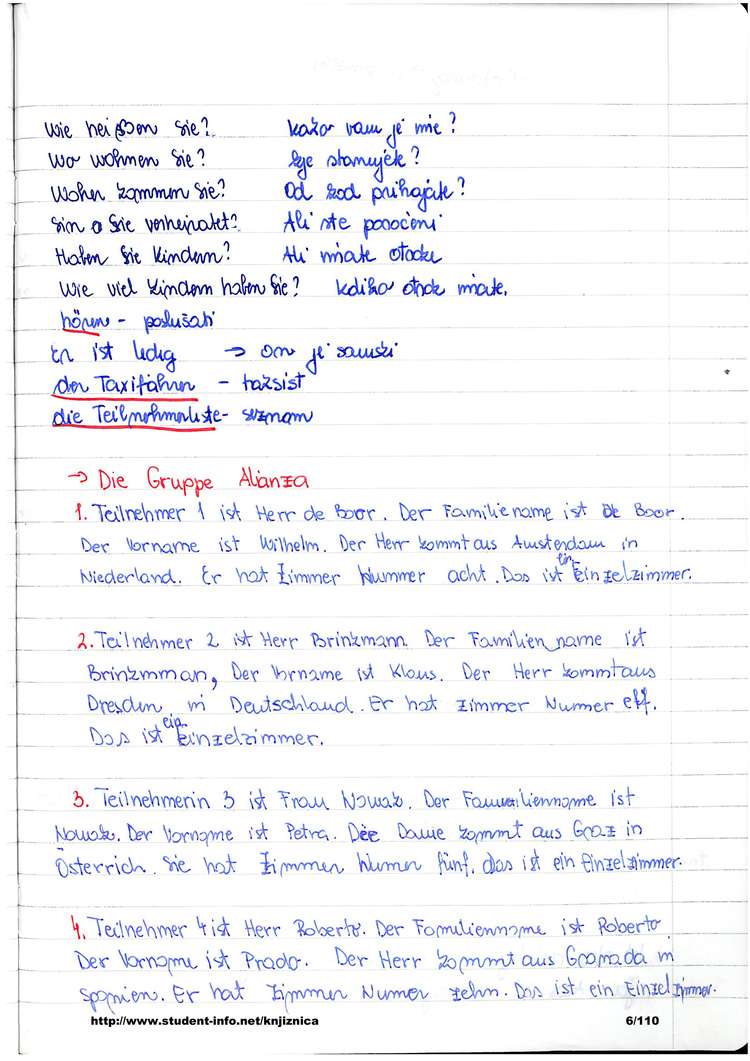 Wie heißen Sie? kako vam je ime?
Wo wohnen Sie? kje stanujete?
Woher kommen Sie? Od kod prihajate?
Sin o Sie verheiratet? Ali ste poročeni
Haben Sie Kindern? Ali imate otroke
Wie viel Kindern haben Sie? koliko otrok imate.
hören - poslušati
Er ist ledig → on je samski
der Taxifahrer - taksist
die Teilnehmerliste - seznam
→ Die Gruppe Alianza
1. Teilnehmer 1 ist Herr de Boor. Der Familiename ist De Boor.
Der Vorname ist Wilhelm. Der Herr kommt aus Amsterdam in
Niederland. Er hat Zimmer Nummer acht. Das ist ein Einzelzimmer.
2. Teilnehmer 2 ist Herr Brinkmann. Der Familienname ist
Brinkmman, Der Vorname ist Klaus. Der Herr kommt aus
Dresden in Deutschland. Er hat Zimmer Numer elf.
Das ist ein Einzelzimmer.
3. Teilnehmerin 3 ist Frau Nowak. Der Familienname ist
Nowak. Der Vorname ist Petra. Die Dame kommt aus Graz in
Österrich. Sie hat Zimmer Numer fünf, das ist ein Einzelzimmer.
4. Teilnehmer 4 ist Herr Roberto. Der Familienname ist Roberto.
Der Vorname ist Prado. Der Herr kommt aus Granada in
Spanien. Er hat Zimmer Numer zehn. Das ist ein Einzelzimmer.
http://www.student-info.net/knjiznica 6/110